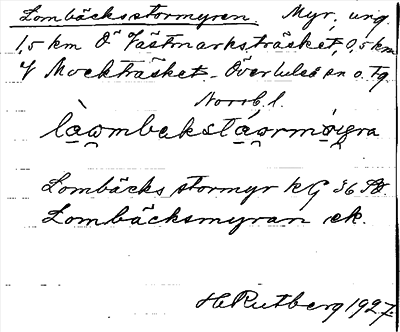 Lombäcksstormyren. Myr, ung.
1,5 km Ö Västmarksträsket, 0,5 km
V Mockträsket. Överluleå sn o. tg.
Norrb. l.
Lombäcks stormyr kG 36
Lombäcksmyran ek.
H Rutberg 1927.